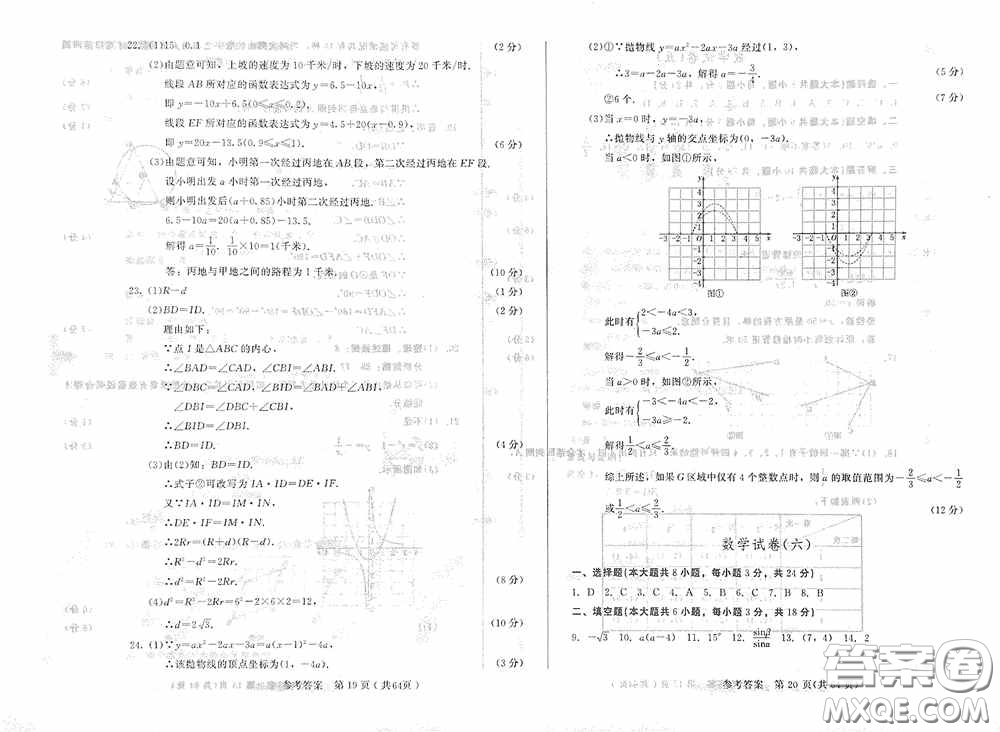 22. (1)15 0.1 (2分)
(2)由题意可知,上坡的速度为10千米/时,下坡的速度为20千米/时.
线段AB所对应的函数表达式为y=6.5-10x,
即y=-10x+6.5(0≤x≤0.2),
线段EF所对应的函数表达式为y=4.5+20(x-0.9),
即y=20x-13.5(0.9≤x≤1) (6分)
(3)由题意可知,小明第一次经过丙地在AB段,第二次经过丙地在EF段,
设小明出发a小时第一次经过丙地,
则小明出发后(a+0.85)小时第二次经过丙地,
6.5-10a=20(a+0.85)-13.5.
解得a=1/10. 1/10×10=1(千米).
答:丙地与甲地之间的路程为1千米. (10分)
23. (1)R-d (1分)
(2)BD=ID. (2分)
理由如下:
∵点I是△ABC的内心,
∴∠BAD=∠CAD,∠CBI=∠ABI.
∵∠DBC=∠CAD,∠BID=∠BAD+∠ABI,
∠DBI=∠DBC+∠CBI,
∴∠BID=∠DBI.
∴BD=ID. (4分)
(3)由(2)知:BD=ID.
∴式子②可改写为IA·ID=DE·IF.
又∵IA·ID=IM·IN,
∴DE·IF=IM·IN,
∴2Rr=(R+d)(R-d).
∴R²-d²=2Rr.
∴d²=R²-2Rr. (8分)
(4)d²=R²-2Rr=6²-2×6×2=12,
∴d=2√3. (10分)
24. (1)∵y=ax²-2ax-3a=a(x-1)²-4a,
∴该抛物线的顶点坐标为(1,-4a). (3分)
参考答案 第19页(共64页)
(2)①∵抛物线y=ax²-2ax-3a经过(1,3),
∴3=a-2a-3a,解得a=-3/4. (5分)
②6个. (7分)
(3)当x=0时,y=-3a,
∴抛物线与y轴的交点坐标为(0,-3a).
当a<0时,如图①所示,
图① 图②
此时有{2<-4a<3, -3a≤2.
解得-2/3≤a<-1/2.
当a>0时,如图②所示,
此时有{-3<-4a<-2, -3a≥-2.
解得1/2<a≤2/3.
综上所述,如果G区域中仅有4个整数点时,则a的取值范围为-2/3≤a<-1/2
或1/2<a≤2/3. (12分)
数学试卷(六)
一、选择题(本大题共8小题,每小题3分,共24分)
1. D 2. C 3. C 4. C 5. B 6. C 7. A 8. C
二、填空题(本大题共6小题,每小题3分,共18分)
9. -√3 10. a(a-4) 11. 15° 12. sinβ/sinα 13. (7,4) 14. 2
参考答案 第20页(共64页)
答案圈
MXQE.COM